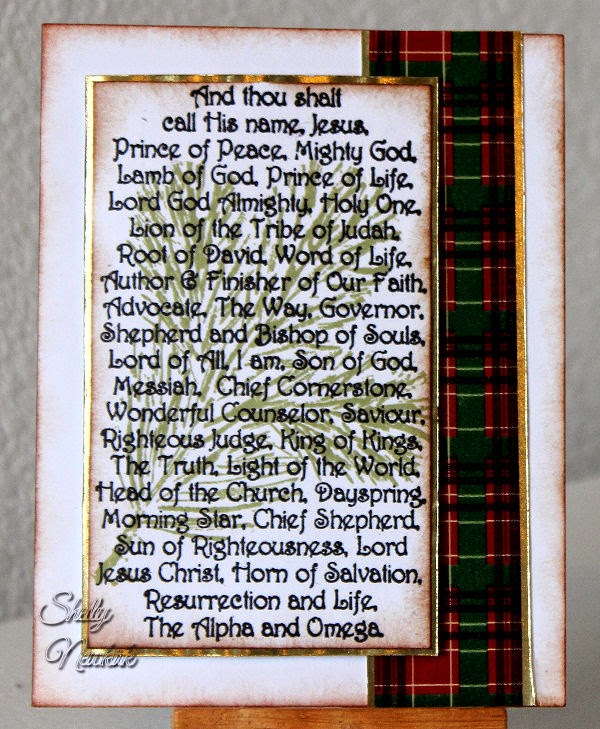 And thou shalt
call His name, Jesus,
Prince of Peace, Mighty God,
Lamb of God, Prince of Life,
Lord God Almighty, Holy One,
Lion of the Tribe of Judah,
Root of David, Word of Life,
Author & Finisher of Our Faith,
Advocate, The Way, Governor,
Shepherd and Bishop of Souls,
Lord of All, I am, Son of God,
Messiah, Chief Cornerstone,
Wonderful Counselor, Saviour,
Righteous Judge, King of Kings,
The Truth, Light of the World,
Head of the Church, Dayspring,
Morning Star, Chief Shepherd,
Sun of Righteousness, Lord
Jesus Christ, Horn of Salvation,
Resurrection and Life,
The Alpha and Omega.
Shelly